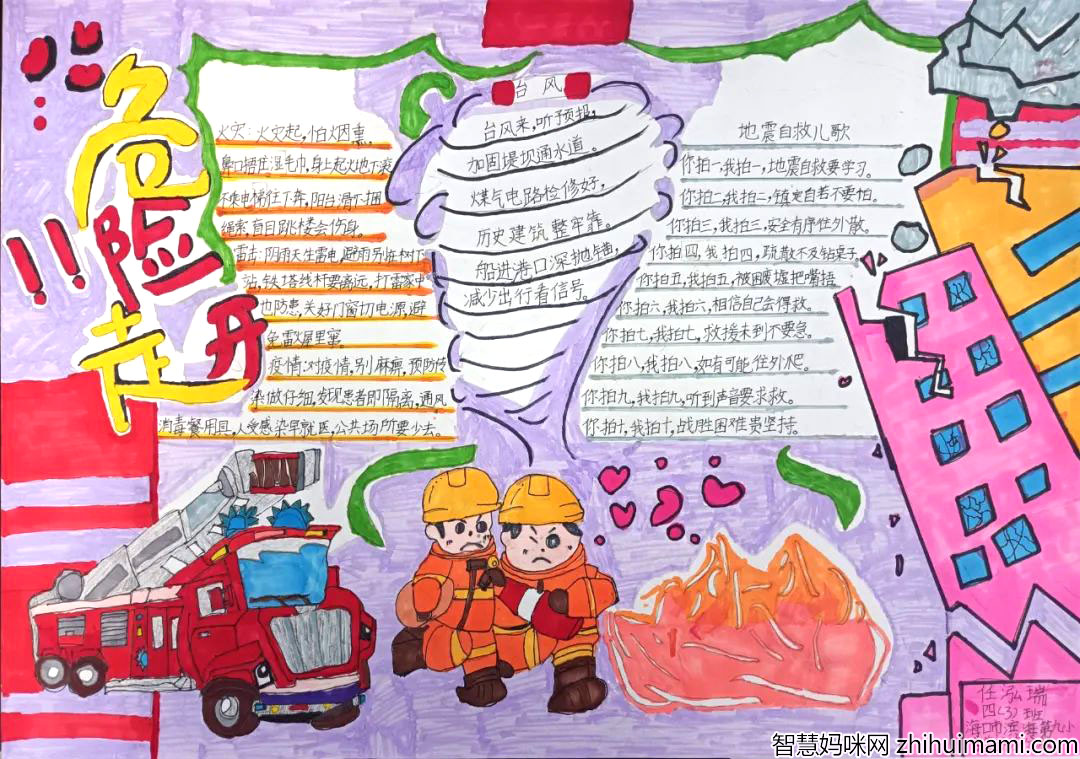 危险走开!!
火灾:火灾起,怕烟熏,
鼻口捂住湿毛巾,身上起火地下滚
不乘电梯往下奔,阳台滑下捆
绳索,盲目跳楼会伤身。
雷击:阴雨天生雷电,避雨别在树下
站,铁塔线杆要离远,打雷家中
也防患,关好门窗切电源,避
免雷敲屋里窜。
疫情:对疫情,别麻痹,预防传
染做仔细,发现患者即隔离,通风
消毒餐用具,人受感染早就医,公共场所要少去。
台风
台风来,听预报,
加固堤坝通水道。
煤气电路检修好,
历史建筑整牢靠。
船进港口深抛锚,
减少出行看信号。
地震自救儿歌
你拍一,我拍一,地震自救要学习。
你拍二,我拍二,镇定自若不要怕。
你拍三,我拍三,安全有序往外散。
你拍四,我拍四,疏散不及钻桌子。
你拍五,我拍五,被困废墟把嘴捂
你拍六,我拍六,相信自己会得救。
你拍七,我拍七,救援未到不要急。
你拍八,我拍八,如有可能往外爬。
你拍九,我拍九,听到声音要求救。
你拍十,我拍十,战胜困难贵坚持。
任泓瑞
四(3)班
海口市滨海第九小
智慧妈咪网 zhihuimami.com